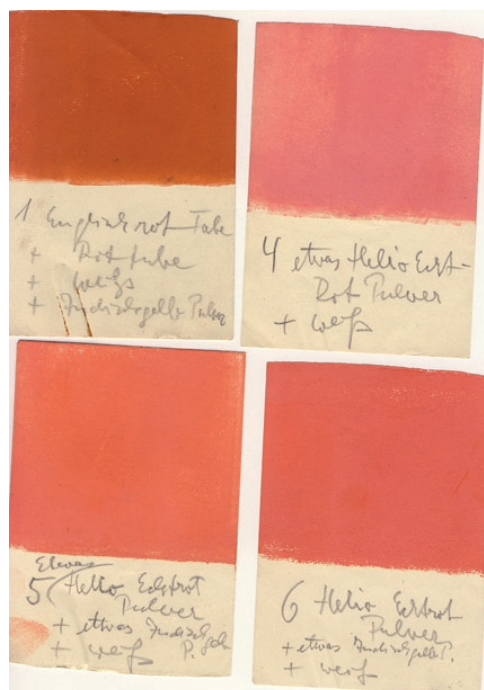 1 Englischrot Tube
+ Rot tube
+ weiß
+ Indischgelb Pulver
4 etwas Helio Echt-
Rot Pulver
+ weiß
Etwas
5 Helio Echtrot
Pulver
+ etwas Indisch
+ weiß P. Gelb
6 Helio Echtrot
Pulver
+ etwas Indischgelb P.
+ weiß